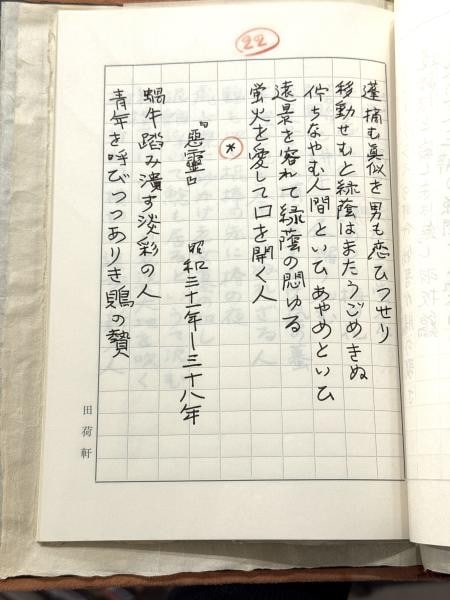 22
蓬摘む真似を男も恋ひつせり
移動せむと緑蔭はまたうごめきぬ
佇ちなやむ人間といひあやめといひ
遠景を容れて緑蔭の悶ゆる
蛍火を愛して口を開く人
*
『悪霊』 昭和三十一年―三十八年
蝸牛踏み潰す淡彩の人
青年を呼びつつありき鵙の贄
田荷軒